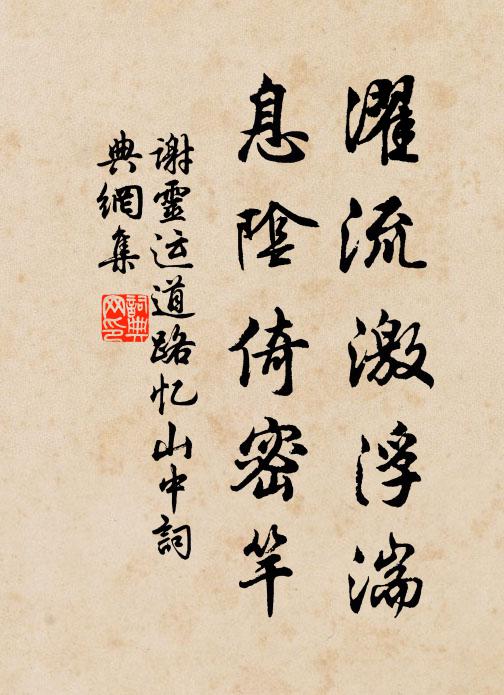 濯流激浮湍
息陰倚密竿
谢靈运道路忆山中詞
典網集
詞典网印